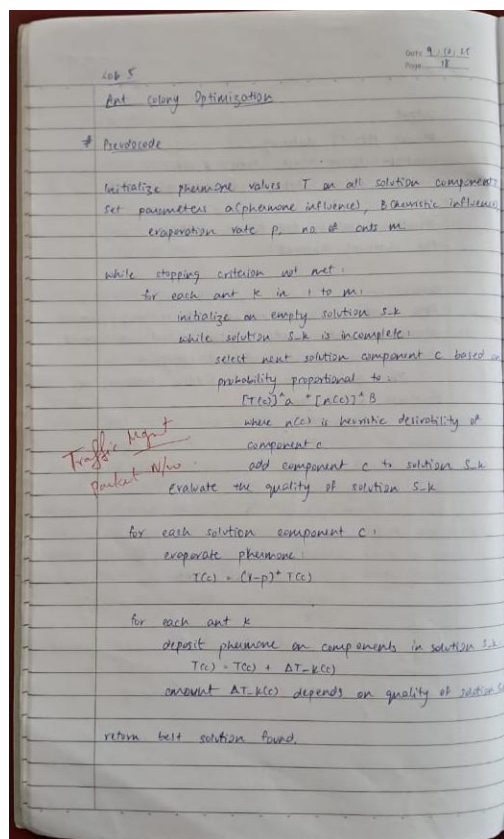 Date 9/10/25
Page 18
Lab 5
Ant Colony Optimization
# Pseudocode
Initialize phermone values T on all solution components
Set parameters a(phermone influence), B(heuristic influence)
evaporation rate p, no of ants m.
while stopping criterion not met:
for each ant k in 1 to m:
initialize an empty solution S_k
while solution S_k is incomplete:
select next solution component c based on
probability proportional to:
[T(c)]^a * [n(c)]^B
where n(c) is heuristic desirability of
component c
add component c to solution S_k
Evaluate the quality of solution S_k
Traffic Mgmt
packet N/w
for each solution component c:
evaporate phermone:
T(c) = (1-p)* T(c)
for each ant k
deposit phermone on components in solution S_k
T(c) = T(c) + ΔT_k(c)
amount ΔT_k(c) depends on quality of solution
return best solution found.